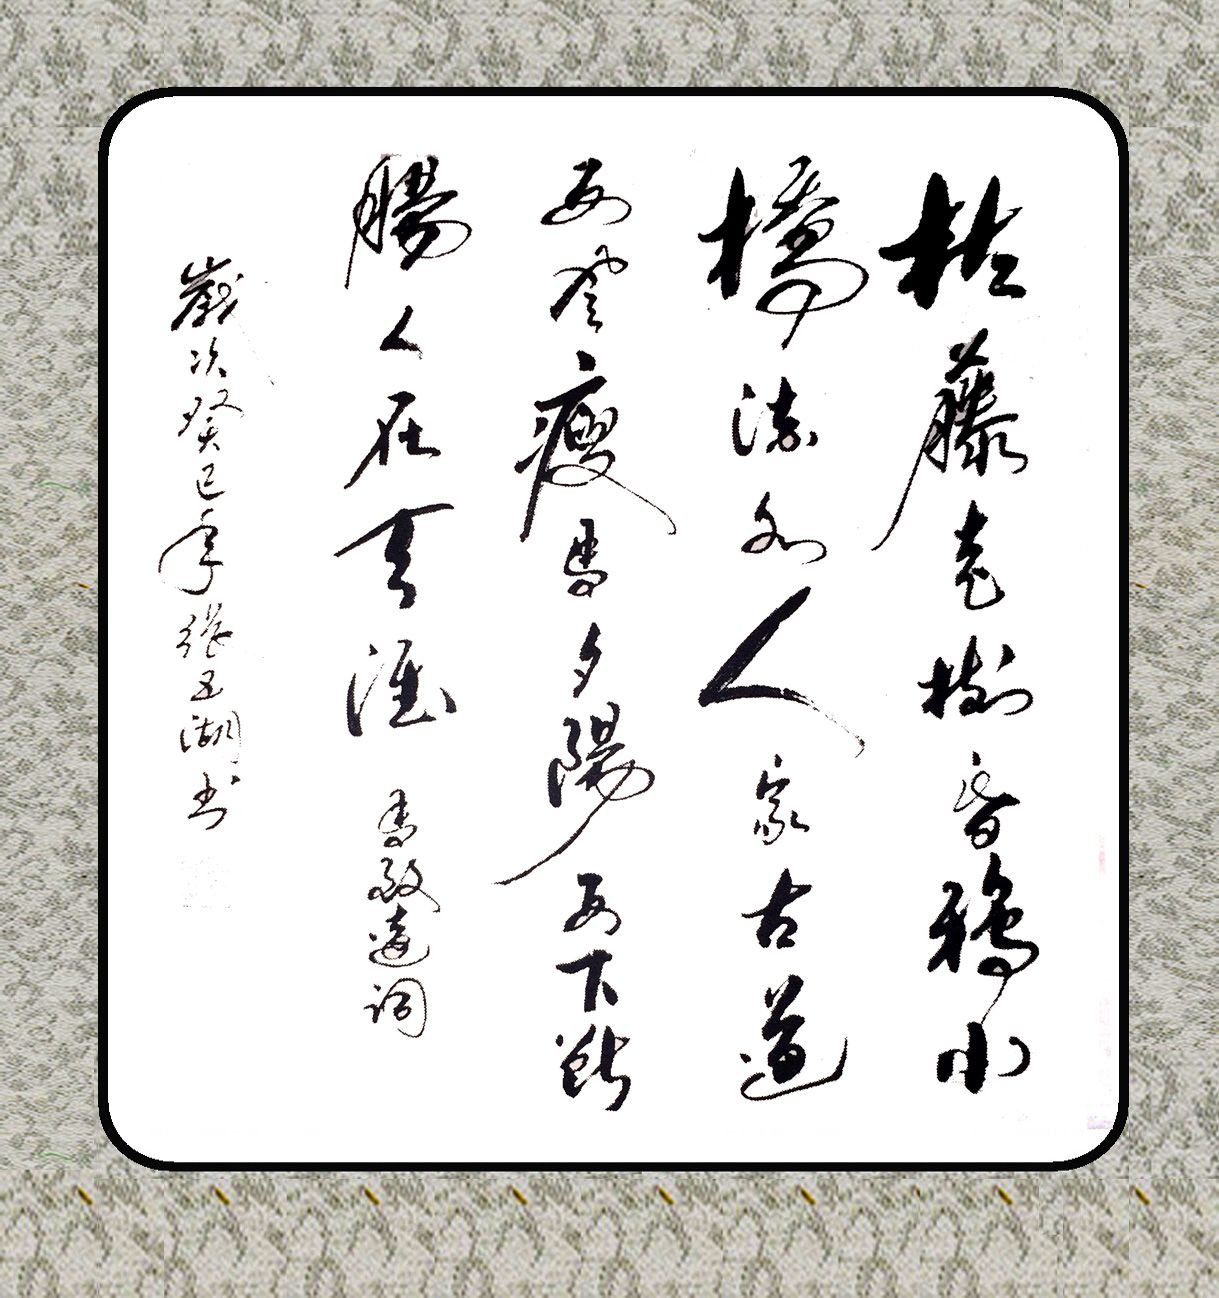 枯藤老樹昏鴉小
橋流水人家古道
西風瘦馬夕陽西下斷
腸人在天涯 馬致遠詞
歲次癸巳年張五湖书